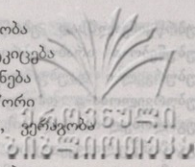 ობა
კიცება
ნება
ორი
, ვერაგობა
ეროვნული
ბიბლიოთეკა